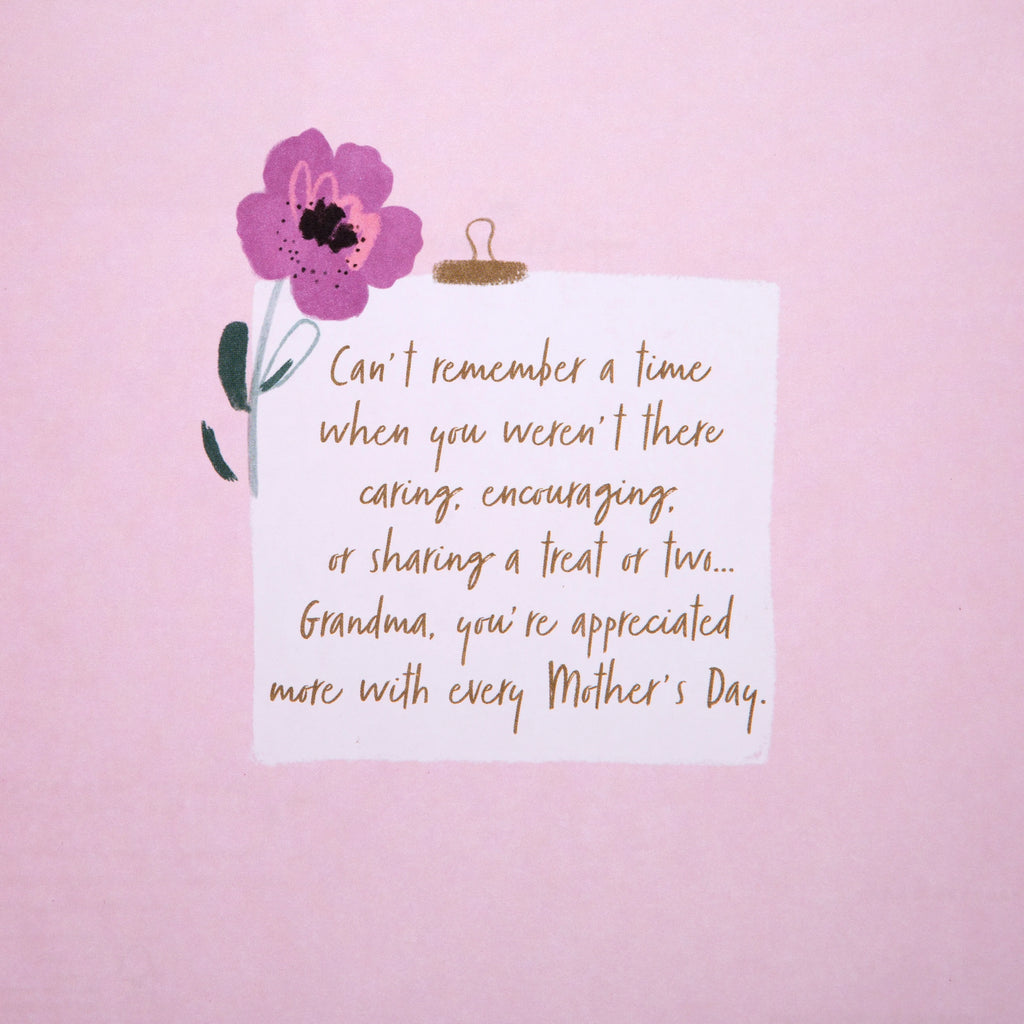 Can't remember a time
when you weren't there
caring, encouraging,
or sharing a treat or two...
Grandma, you're appreciated
more with every Mother's Day.